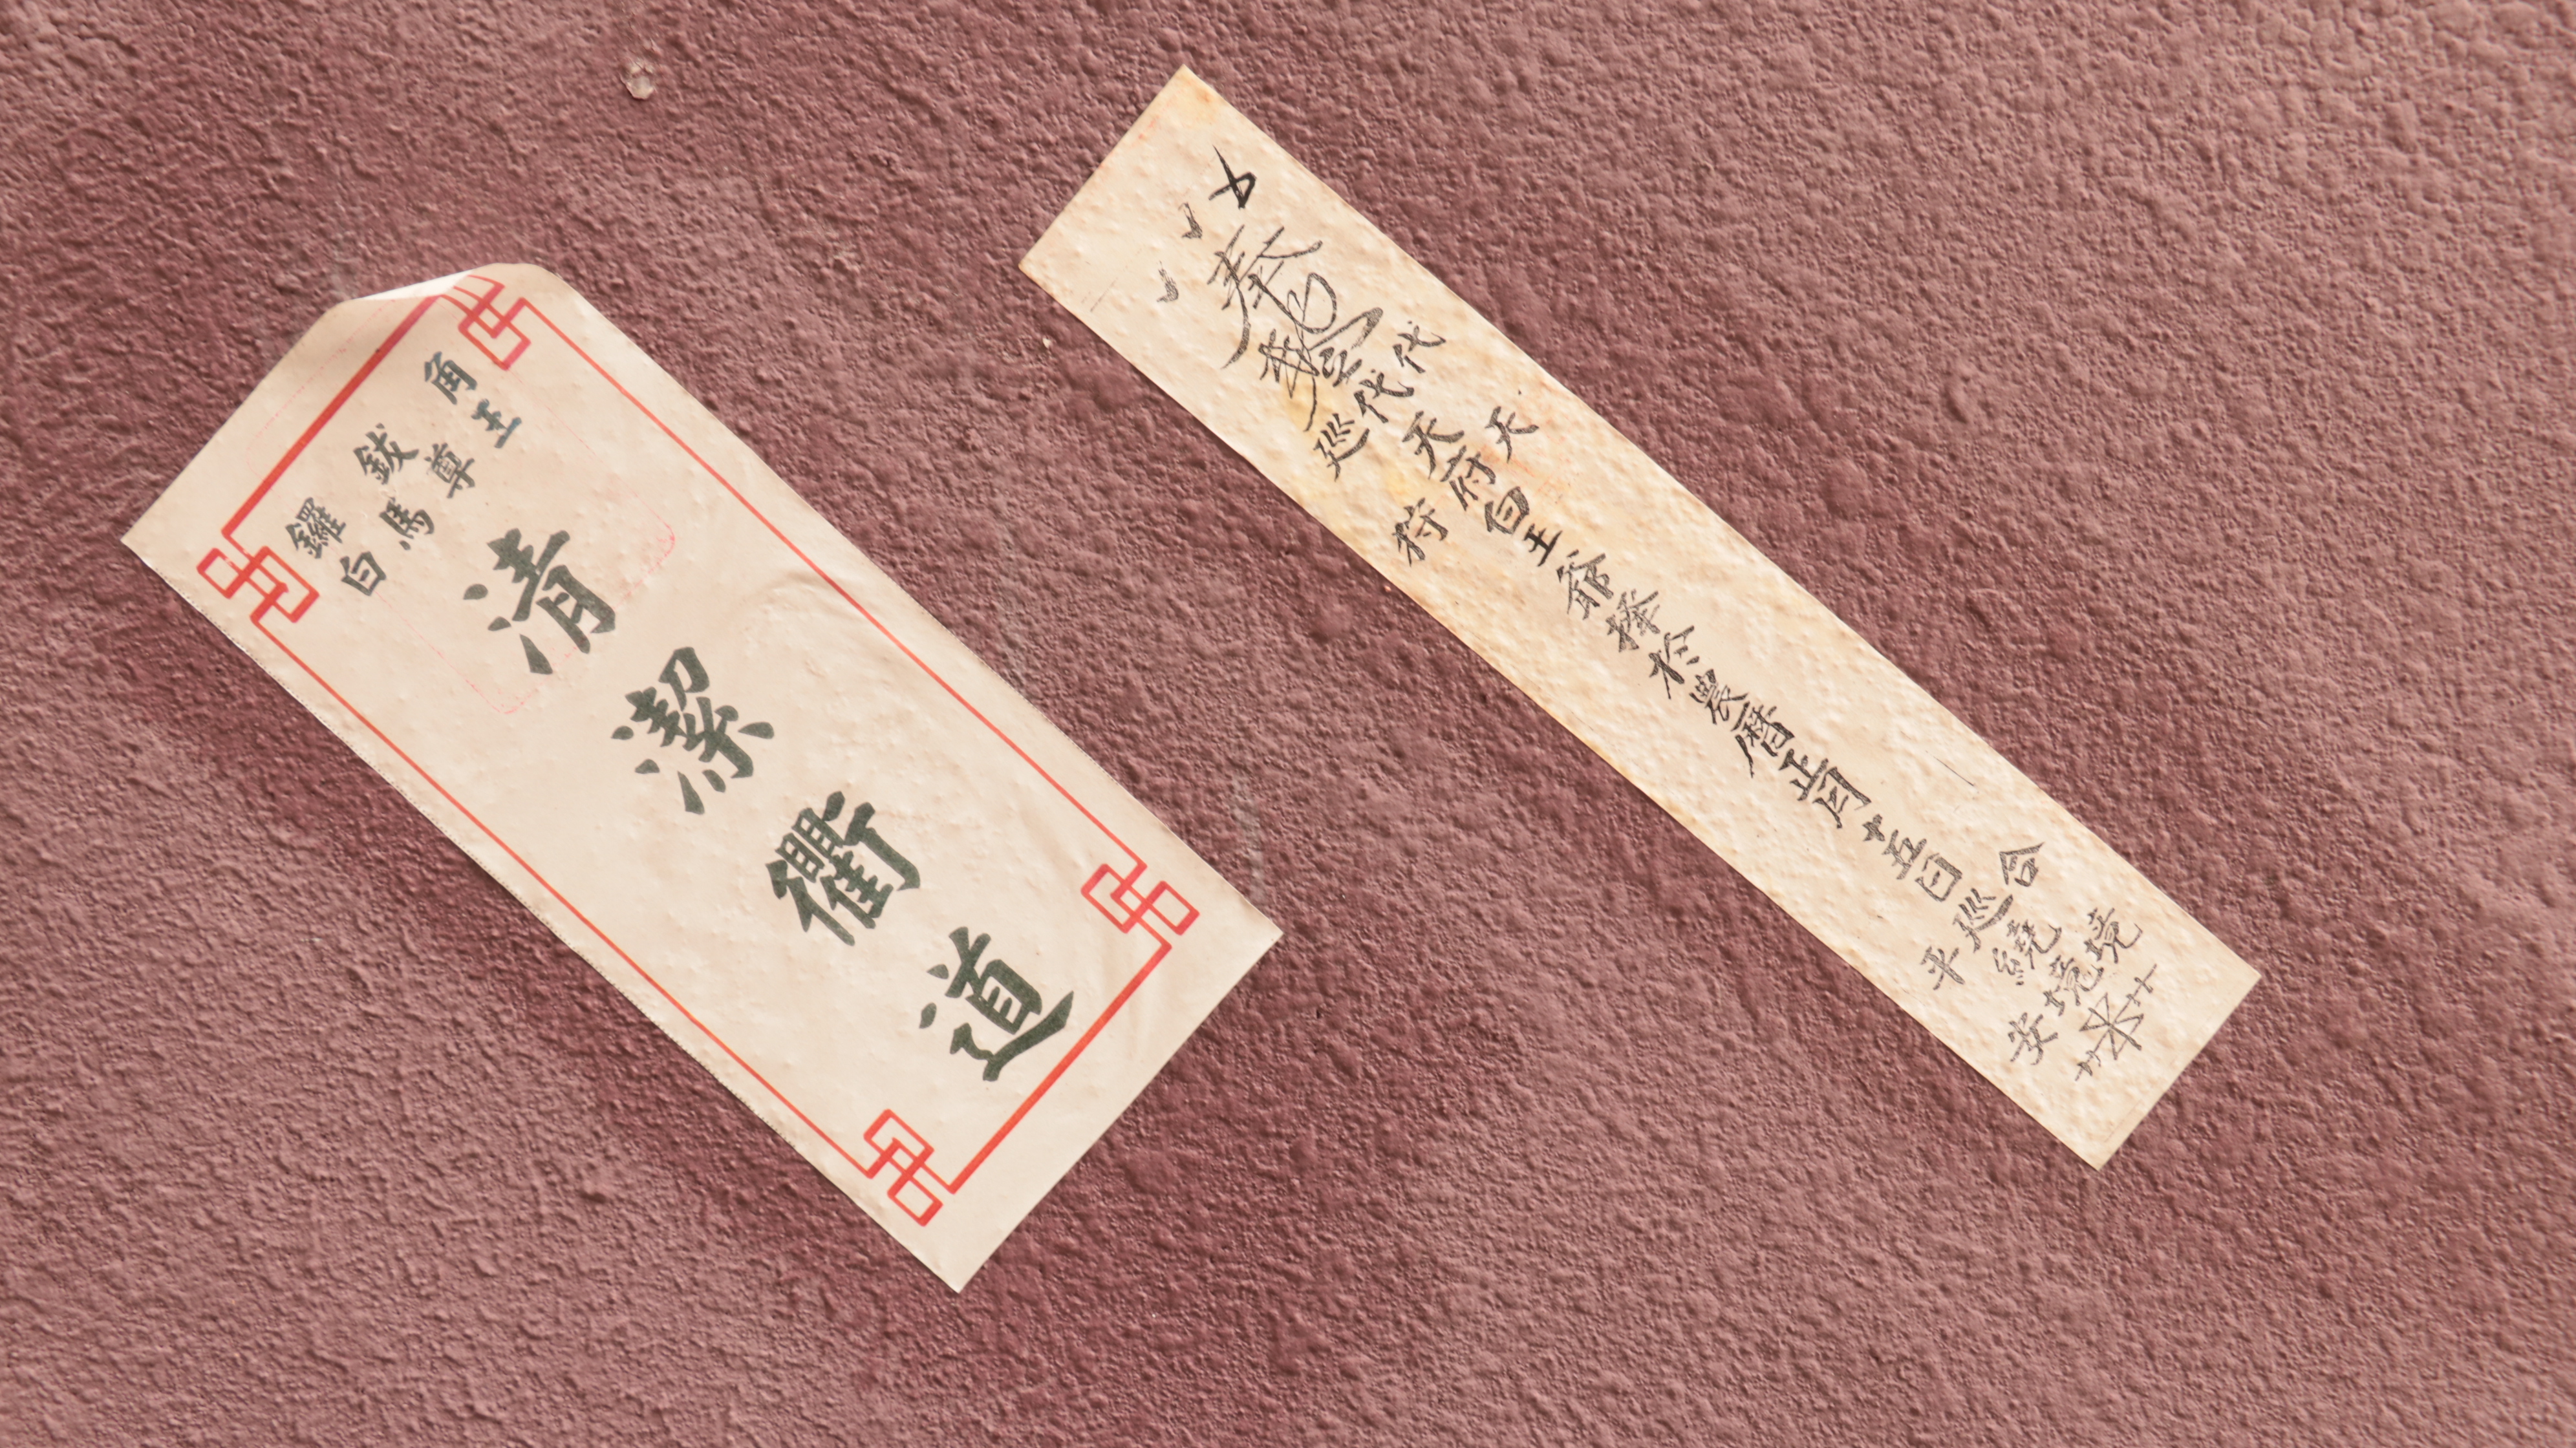 鑼鈸角
白馬尊王
清潔衢道
奉
代天
巡狩
代天府白王爺擇於農曆正月十五日巡繞境
合境
平安